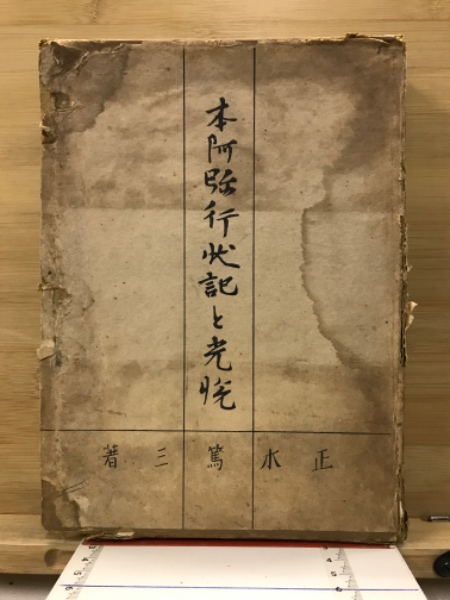 本阿弥行状記と光悦
正木篤三著